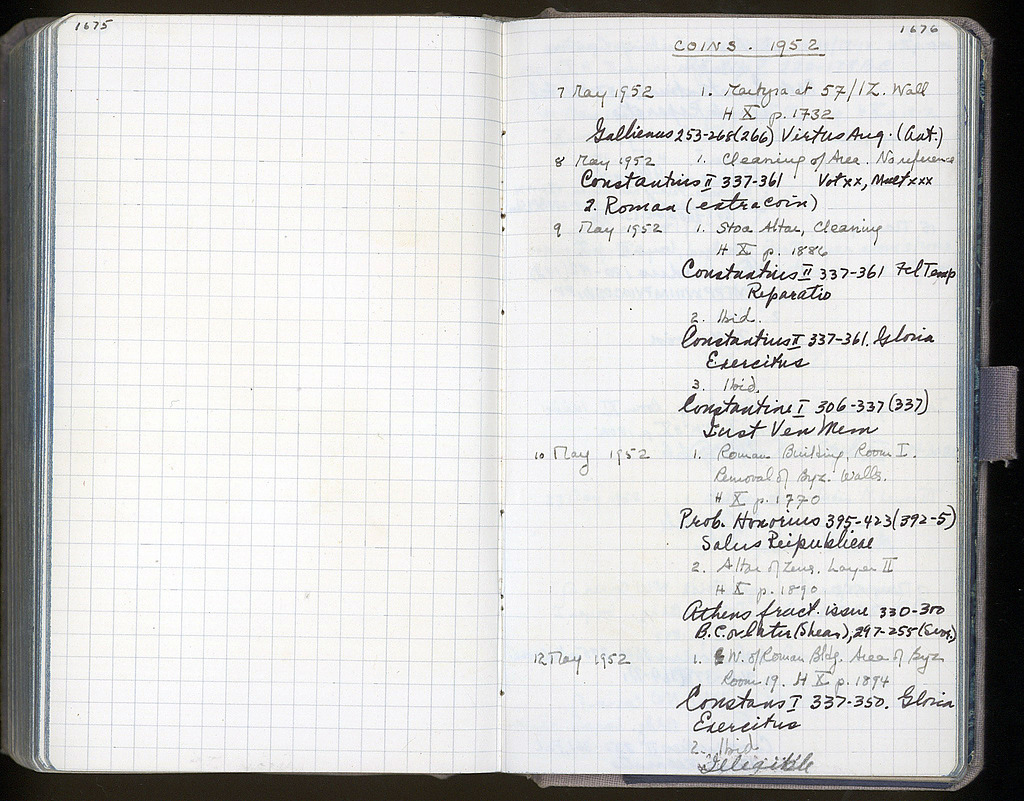 1675
1676
COINS. 1952
7 May 1952 1. Martyra at 57/ΙΖ. Wall
H X p. 1732
Gallienus 253-268 (266) Virtus Aug. (Ant.)
8 May 1952 1. Cleaning of Area. No reference
Constantius II 337-361 Vot xx, Mult xxx
2. Roman (extra coin)
9 May 1952 1. Stoa Altar, Cleaning
H X p. 1886
Constantius II 337-361 Fel Temp
Reparatio
2. Ibid.
Constantius II 337-361. Gloria
Exercitus
3. Ibid.
Constantine I 306-337 (337)
Iust Ven Mem
10 May 1952 1. Roman Building, Room I.
Removal of Byz. Walls.
H X p. 1770
Prob. Honorius 395-423 (392-5)
Salus Reipublicae
2. Altar of Zeus. Layer II
H X p. 1890
Athens fract. issue 330-300
B.C. or later (Shear), 297-255 (Svor.)
12 May 1952 1. W. of Roman Bldg. Area of Byz
Room 19. H X p. 1894
Constans I 337-350. Gloria
Exercitus
2. Ibid
Illegible